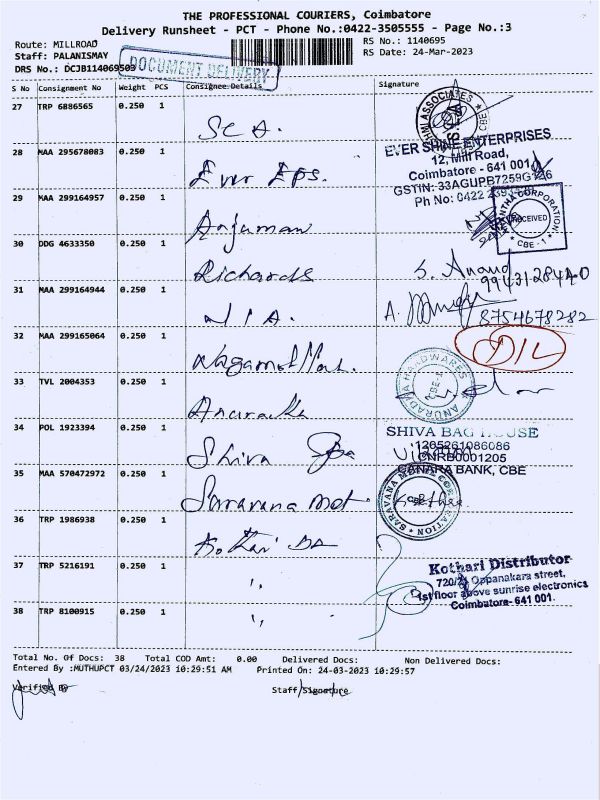 THE PROFESSIONAL COURIERS, Coimbatore
Delivery Runsheet - PCT - Phone No.:0422-3505555 - Page No.:3
Route: MILLROAD
RS No.: 1140695
Staff: PALANISMAY
RS Date: 24-Mar-2023
DRS No.: DCJB114069503
DOCUMENT DELIVERY
S No Consignment No Weight PCS Consignee Details Signature
27 TRP 6886565 0.250 1
ASSOCIATES
28 MAA 295678083 0.250 1 Ever Eps.
EVER SHINE ENTERPRISES
12, Mill Road,
Coimbatore - 641 001
GSTIN: 33AGUPB7259G
Ph No: 0422
29 MAA 299164957 0.250 1 Anjuman
CORPORATION
RECEIVED
CBE - 1
30 DDG 4633350 0.250 1 Richards S. Anand
9943128440
31 MAA 299164944 0.250 1 A.
8754678282
32 MAA 299165064 0.250 1 D/L
33 TVL 2004353 0.250 1
ANURADHA HARDWARES
CBE-1
34 POL 1923394 0.250 1 Shiva
SHIVA BAG HOUSE
1265261086086
CNRB0001205
CANARA BANK, CBE
35 MAA 570472972 0.250 1 Saravana Mot.
SARAVANA
36 TRP 1986938 0.250 1 Kothari
37 TRP 5216191 0.250 1 "
Kothari Distributor
720/21 Oppanakara street,
1st floor above sunrise electronics
Coimbatore- 641 001.
38 TRP 8100915 0.250 1 "
Total No. Of Docs: 38 Total COD Amt: 0.00 Delivered Docs: Non Delivered Docs:
Entered By :MUTHUPCT 03/24/2023 10:29:51 AM Printed On: 24-03-2023 10:29:57
Verified By Staff Signature